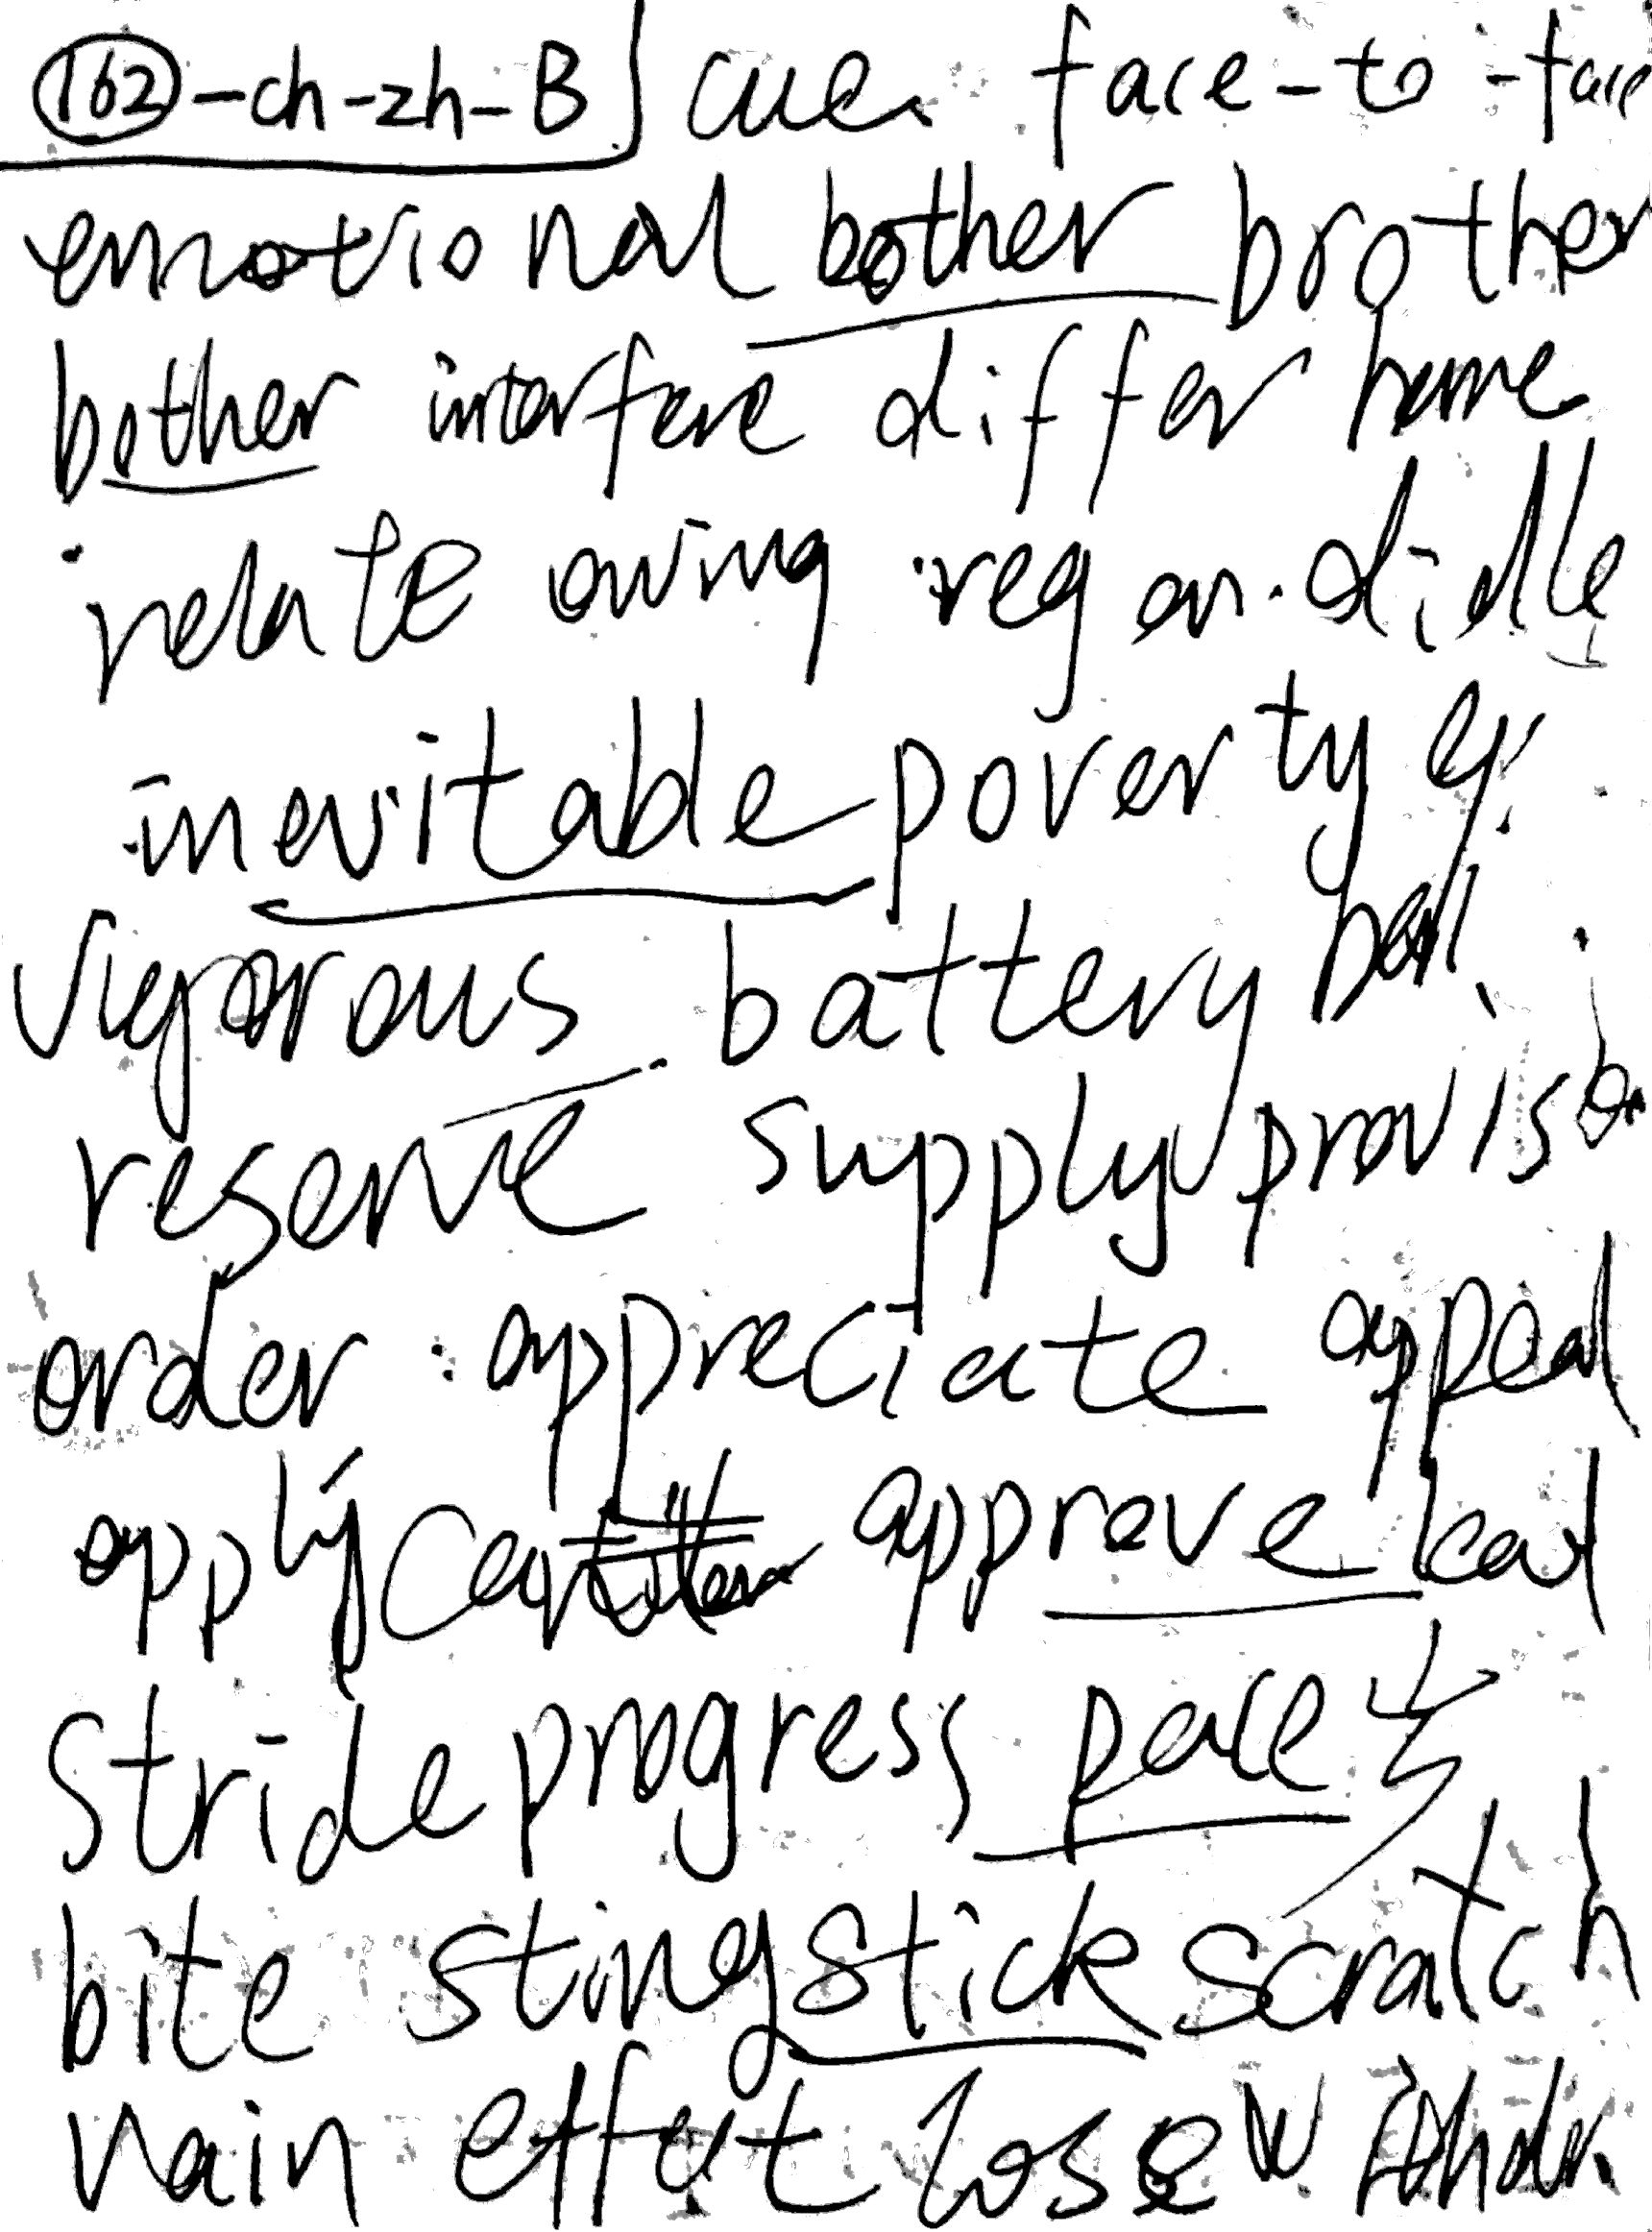 162-ch-zh-B cue. face-to-face
emotional bother brother
bother interfere differ
relate owing regar. didle
inevitable poverty
vigorous. battery
reserve supply provis
order. appreciate appeal
apply approve
stride progress pace
bite sting stick scratch
vain effect lose